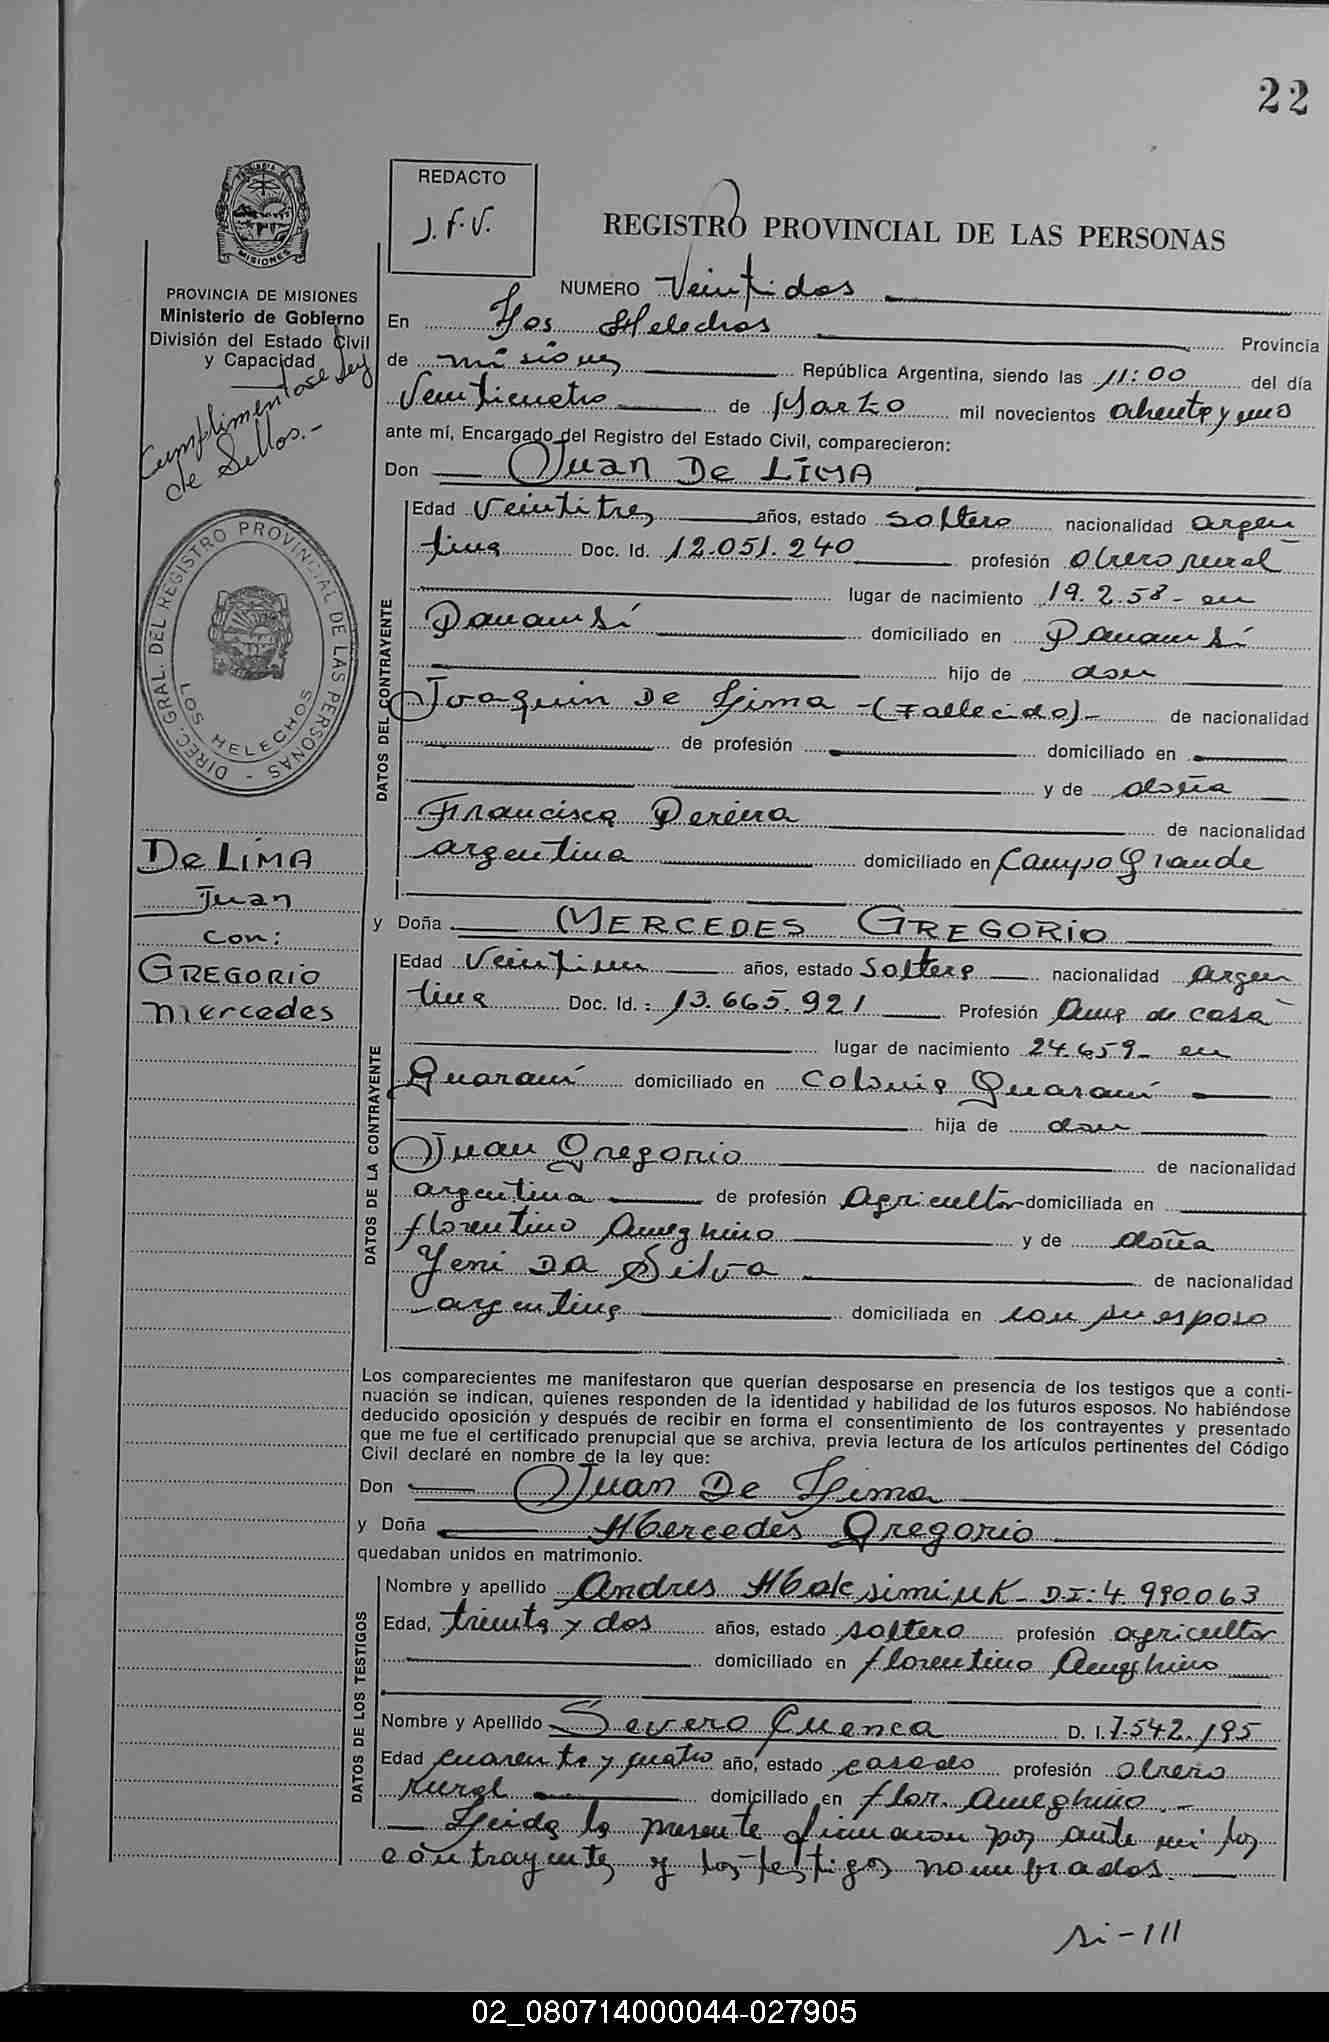 22
REDACTO
J.F.V.
REGISTRO PROVINCIAL DE LAS PERSONAS
MISIONES
PROVINCIA DE MISIONES
Ministerio de Gobierno
División del Estado Civil
y Capacidad
Cumplimentose Ley
de Sellos.-
NUMERO Veintidos
En Los Helechos Provincia
de misiones República Argentina, siendo las 11:00 del día
Veinticuatro de Marzo mil novecientos ochenta y uno
ante mí, Encargado del Registro del Estado Civil, comparecieron:
Don Juan De LIMA
DIREC. GRAL. DEL REGISTRO PROVINCIAL DE LAS PERSONAS -
LOS HELECHOS
DATOS DEL CONTRAYENTE
Edad Veintitres años, estado soltero nacionalidad argen
tina Doc. Id. 12.051.240 profesión obrero rural
lugar de nacimiento 19.2.58- en
Panambí domiciliado en Panambí
hijo de don
Joaquin De Lima -(Fallecido)- de nacionalidad
de profesión domiciliado en
y de doña
Francisca Pereira de nacionalidad
argentina domiciliado en Campo Grande
De LIMA
Juan
con:
GREGORIO
mercedes
y Doña MERCEDES GREGORIO
DATOS DE LA CONTRAYENTE
Edad Veintiun años, estado soltera nacionalidad argen
tina Doc. Id.: 13.665.921 Profesión Ama de casa
lugar de nacimiento 24.6.59- en
Guaraní domiciliado en Colonia Guaraní
hija de don
Juan Gregorio de nacionalidad
argentina de profesión Agricultor domiciliada en
florentino Ameghino y de doña
Yeni DA Silva de nacionalidad
argentina domiciliada en con su esposo
Los comparecientes me manifestaron que querían desposarse en presencia de los testigos que a conti-
nuación se indican, quienes responden de la identidad y habilidad de los futuros esposos. No habiéndose
deducido oposición y después de recibir en forma el consentimiento de los contrayentes y presentado
que me fue el certificado prenupcial que se archiva, previa lectura de los artículos pertinentes del Código
Civil declaré en nombre de la ley que:
Don Juan De Lima
y Doña Mercedes Gregorio
quedaban unidos en matrimonio.
DATOS DE LOS TESTIGOS
Nombre y apellido Andres Maksimiuk- D.I: 4.990063
Edad, treinta y dos años, estado soltero profesión agricultor
domiciliado en florentino Ameghino
Nombre y Apellido Severo Cuenca D. I. 7.542.195
Edad cuarenta y cuatro año, estado casado profesión obrero
rural domiciliado en flor. Ameghino.-
Leida la presente firmaron por ante mi los
contrayentes y los testigos nombrados.
si-111
02_080714000044-027905